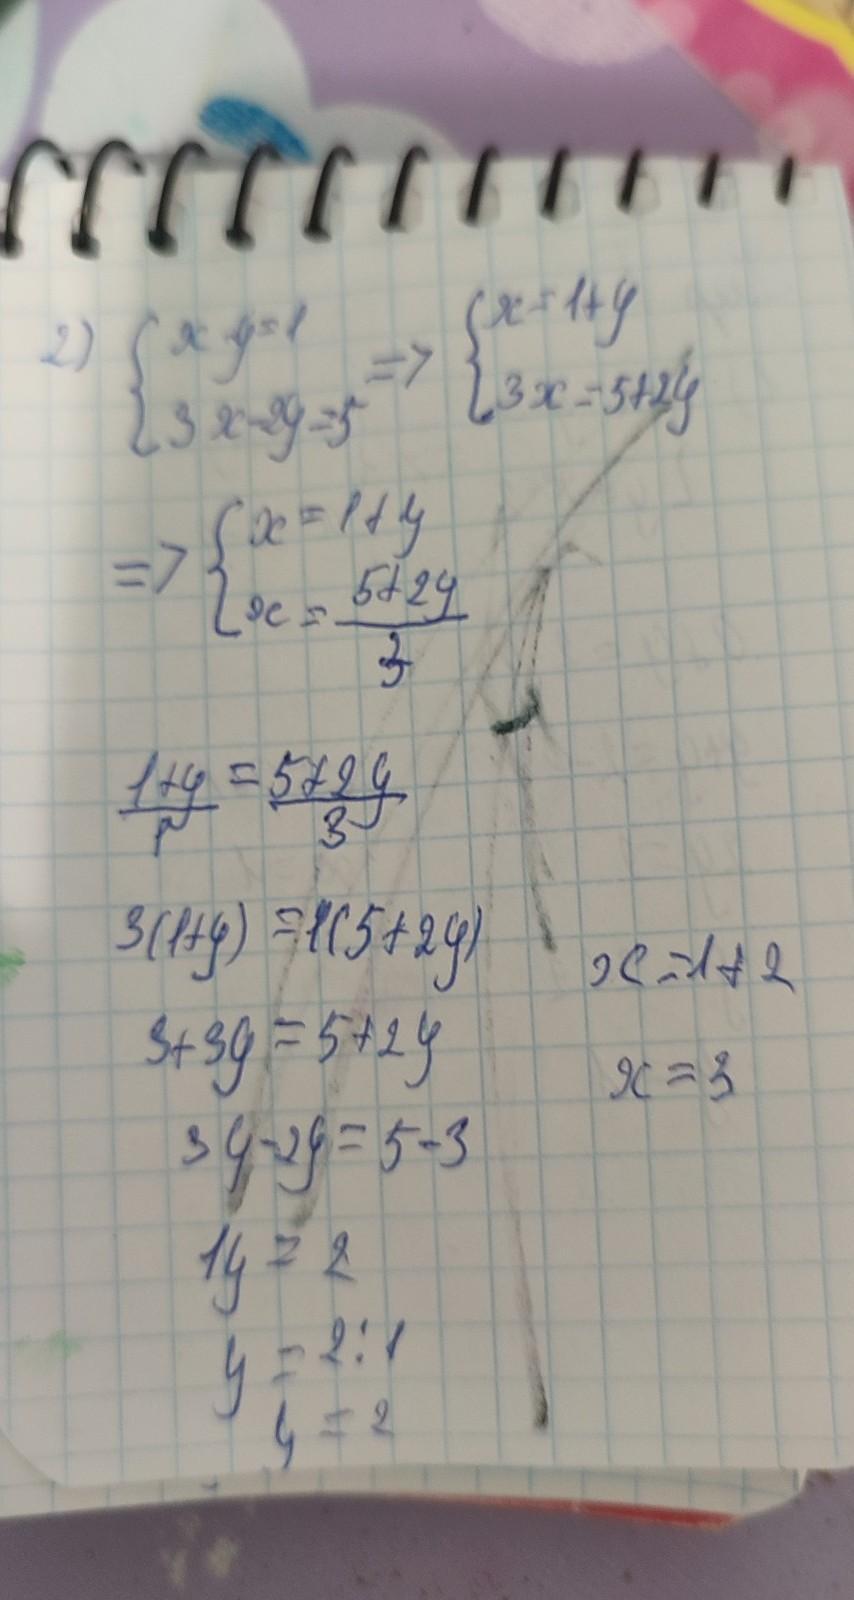 2) { x-y=1 => { x=1+y
3x-2y=5 3x=5+2y
=> { x=1+y
x=5+2y/3
1+y/1=5+2y/3
3(1+y)=1(5+2y)
3+3y=5+2y
3y-2y=5-3
1y=2
y=2:1
y=2
x=1+2
x=3